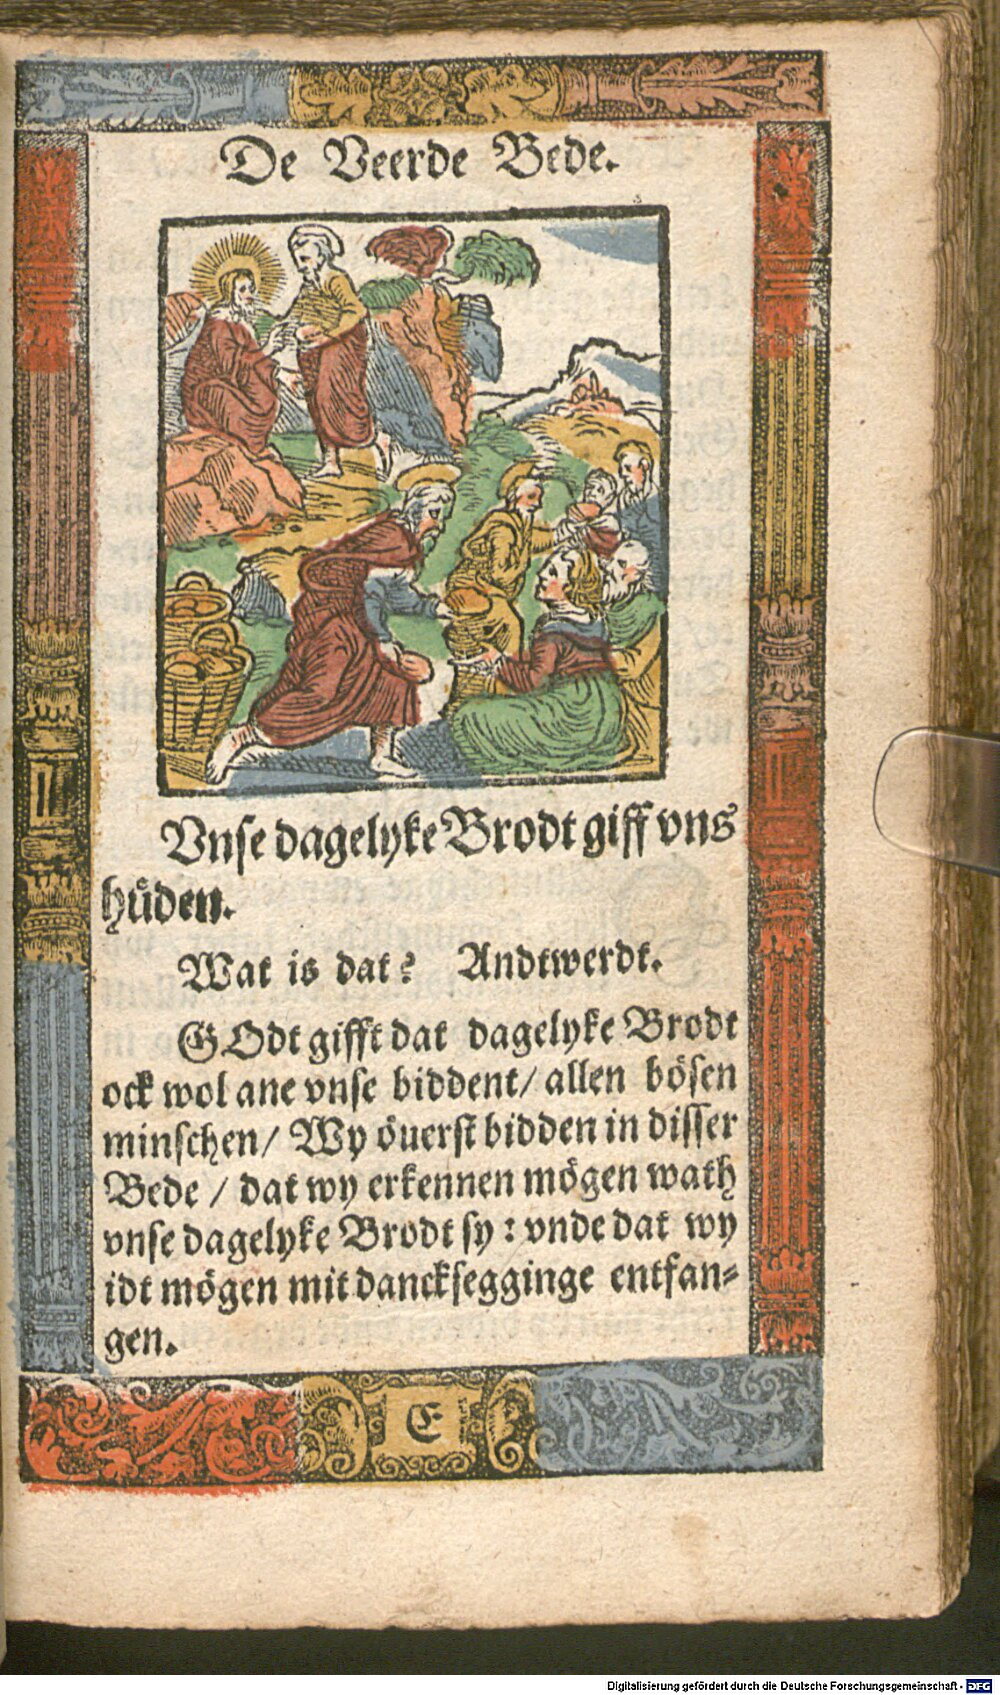 De Veerde Bede.
Vnse dagelyke Brodt giff vns
hüden.
Wat is dat? Andtwerdt.
GOdt gifft dat dagelyke Brodt
ock wol ane vnse biddent/ allen bösen
minschen/ Wy öuerst bidden in disser
Bede / dat wy erkennen mögen wath
vnse dagelyke Brodt sy: vnde dat wy
idt mögen mit dancksegginge entfan-
gen.
E
Digitalisierung gefördert durch die Deutsche Forschungsgemeinschaft - DFG